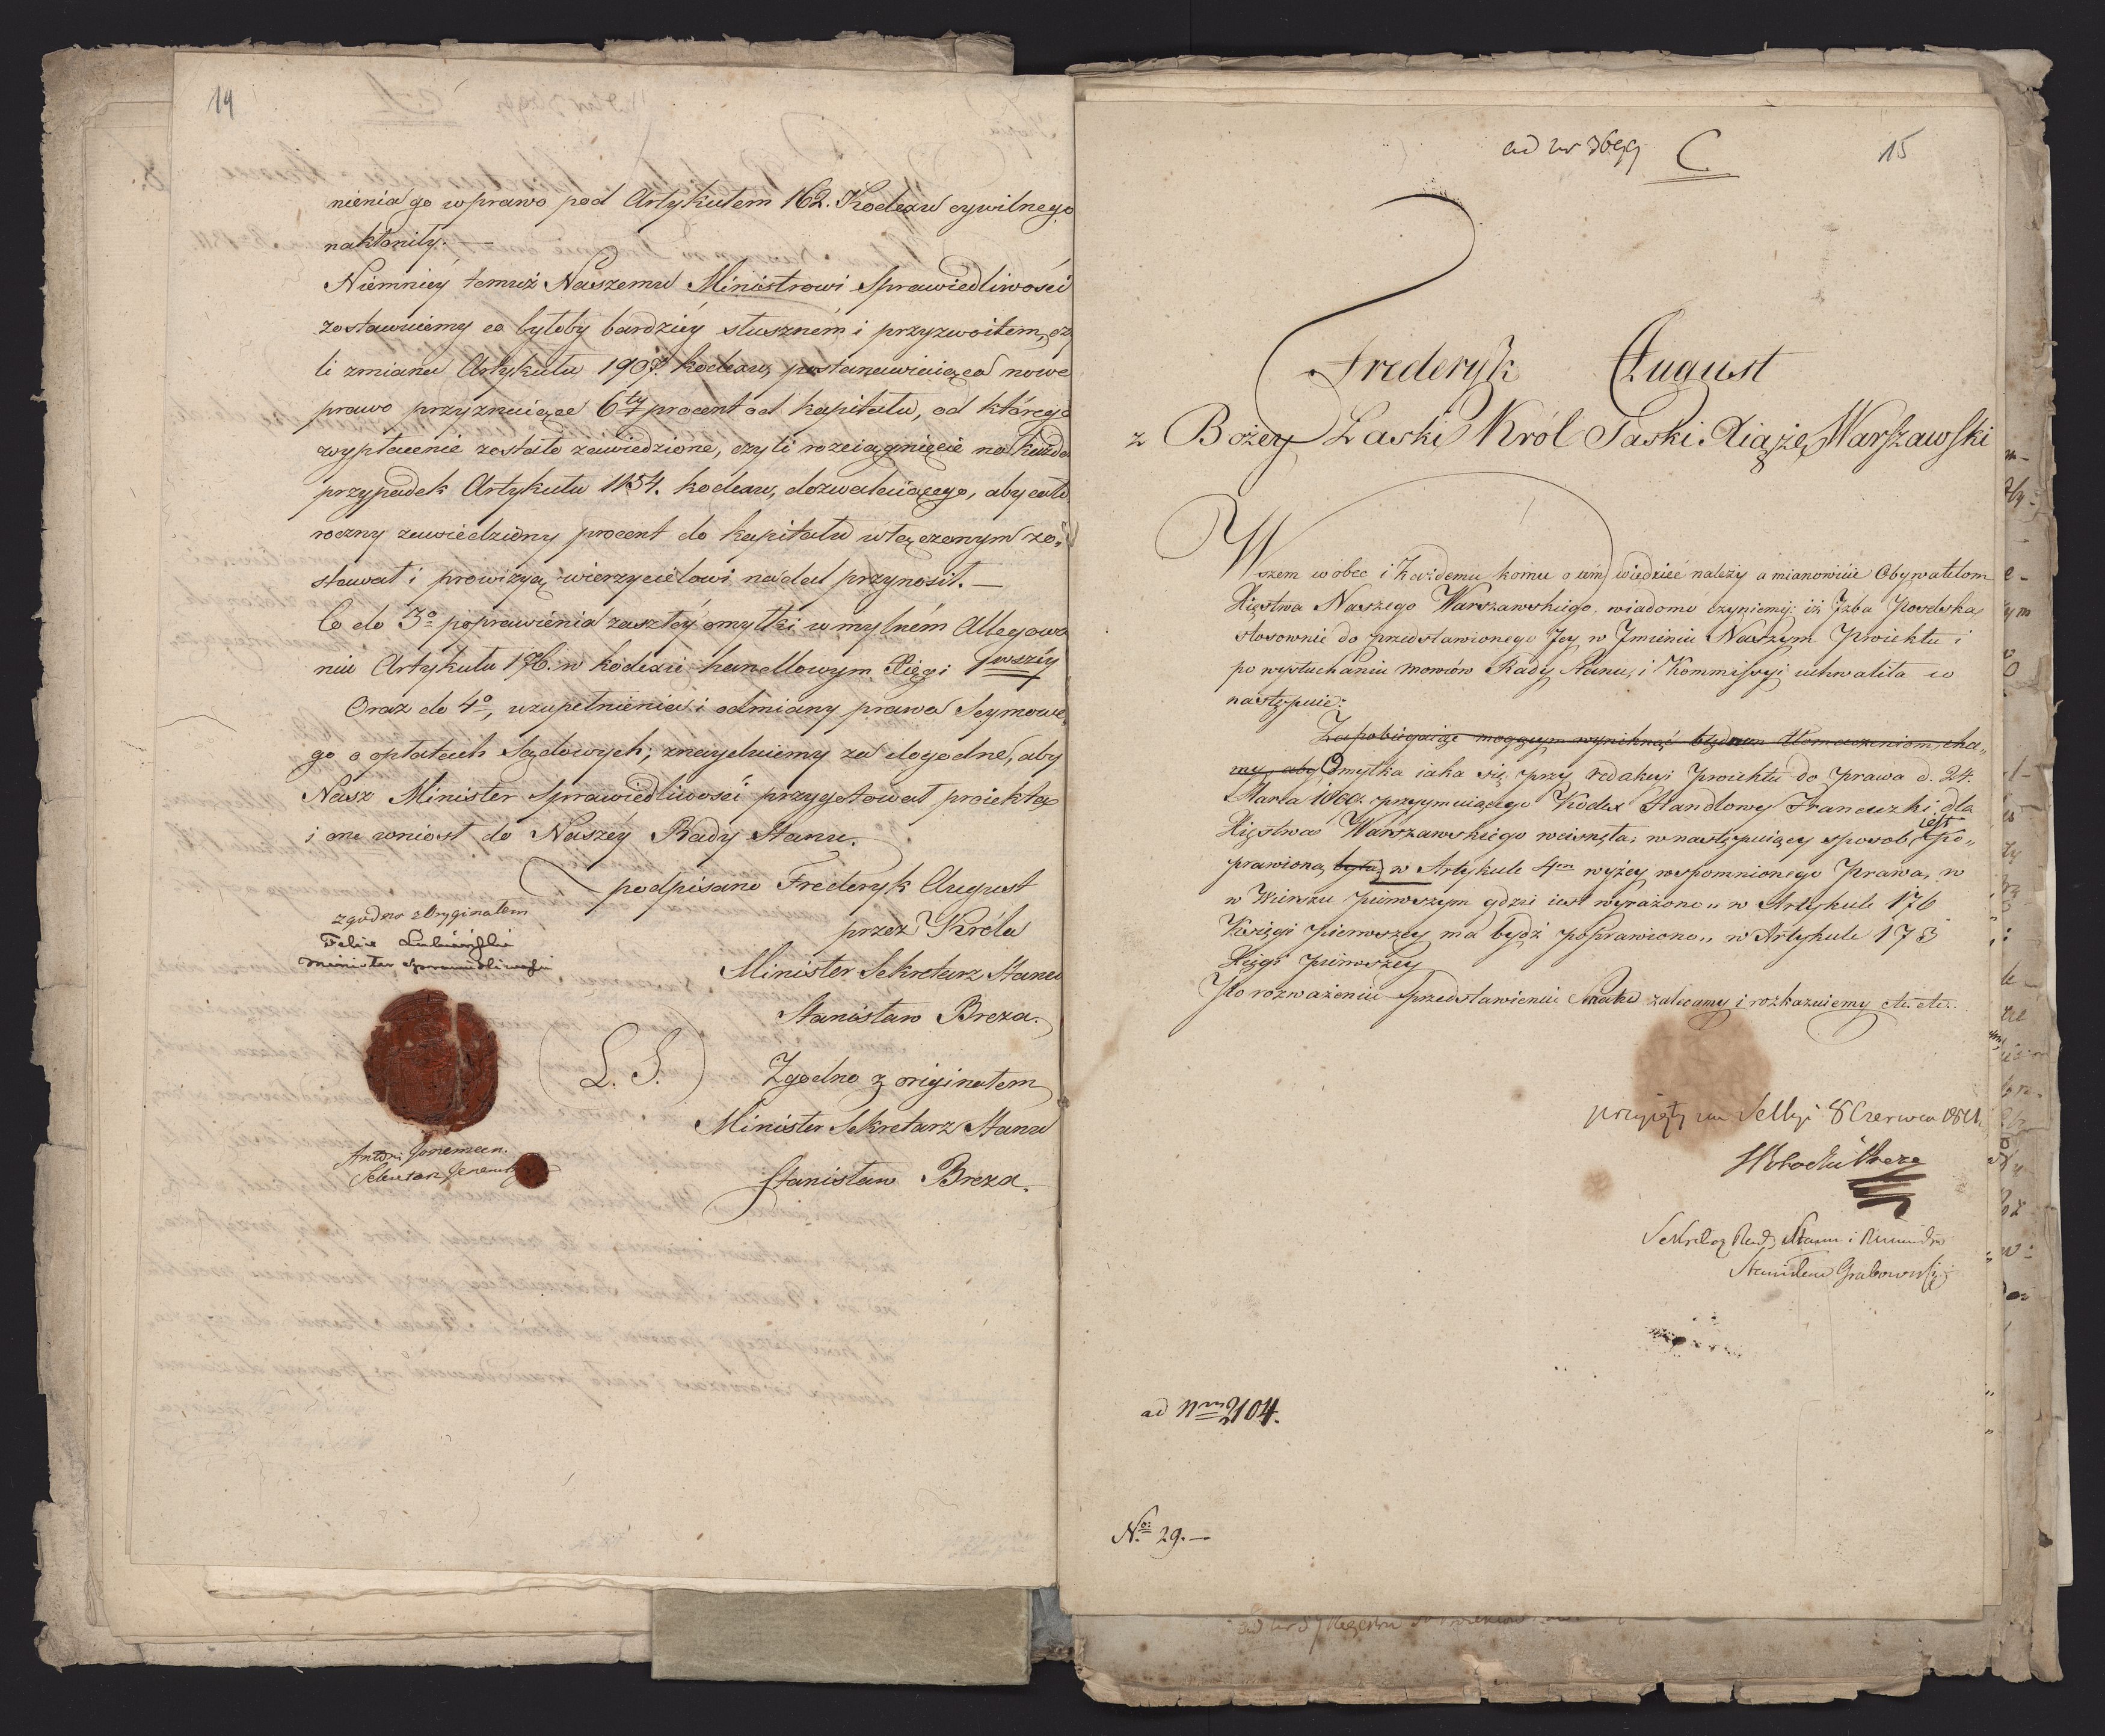 14
nienia go w prawo pod Artykułem 162. Kodexu cywilnego
nakłoniły. —
Niemniéy temuż Naszemu Ministrowi Sprawiedliwości
zostawuiemy co byłoby bardziéy słuszném i przyzwoitem, cz
li zmiana Artykułu 1907. kodexu, postanawiaiąca nowe
prawo przyznaiące 6ty procent od kapitału, od którego
wypłacenie zostało zawiedzione, czyli rozciągnięcie na każdy
przypadek Artykułu 1154. kodexu, dozwalaiącego, aby cało
roczny zawiedziony procent do kapitału włączonym zo„
stawał i prowizyą wierzycielowi nadal przynosił. —
Co do 3o poprawienia zaszłéy omyłki w mylném Allegowa
niu Artykułu 176. w kodexie handlowym Xięgi 1wszéy
Oraz do 4o, uzupełnienia i odmiany prawa Seymowe„
go o opłatach Sądowych; znayduiemy za dogodne, aby
Nasz Minister Sprawiedliwości przygotował proiekta
i one wniósł do Naszéy Rady Stanu.
podpisano Frederyk August
przez Króla
Minister Sekretarz Stanu
Stanisław Breza.
zgodno z Oryginałem
Felix Łubieński
Minister Sprawiedliwości
(L. S.)
Zgodno z originałem
Minister Sekretarz Stanu
Stanisław Breza.
Antoni
Sekretarz
ad nr 3699 C. 15
Frederyk August
z Bożey Łaski Król Saski Xiąże Warszawski
Wszem wobec i każdemu komu o tém wiedzieć należy a mianowicie Obywatelom
Xięstwa Naszego Warszawskiego, wiadomo czyniemy: iż Izba Poselska
stosownie do przedstawionego Jey w Imieniu Naszym Proiektu i
po wysłuchaniu mowców Rady Stanu, i Kommissyi uchwaliła co
następuie:
Zapobiegaiąc mogącym wyniknąć błędnem tłomaczeniom, chce„
my, aby Omyłka iaka się przy redakcyi Proiektu do Prawa d. 24.
Marca 1809. przyymuiącego Kodex Handlowy Francuzki dla
Xięstwa Warszawskiego wcisnęła, w następuiący sposob iest po„
prawioną była, w Artykule 4m wyżey wspomnionego Prawa, w
w Wierszu pierwszym gdzie iest wyrażono „ w Artykule 176
Księgi pierwszey ma bydź poprawiono „ w Artykule 173
Xięgi pierwszey
Po rozważeniu przedstawienia Senatu zalecamy i rozkazuiemy etc. etc.
przyięty na Sessyi 8 Czerwca 1811.
Sekretarz Rady Stanu i Ministrów
Stanisław Grabowski
ad Nrum 2104.
No: 29. —